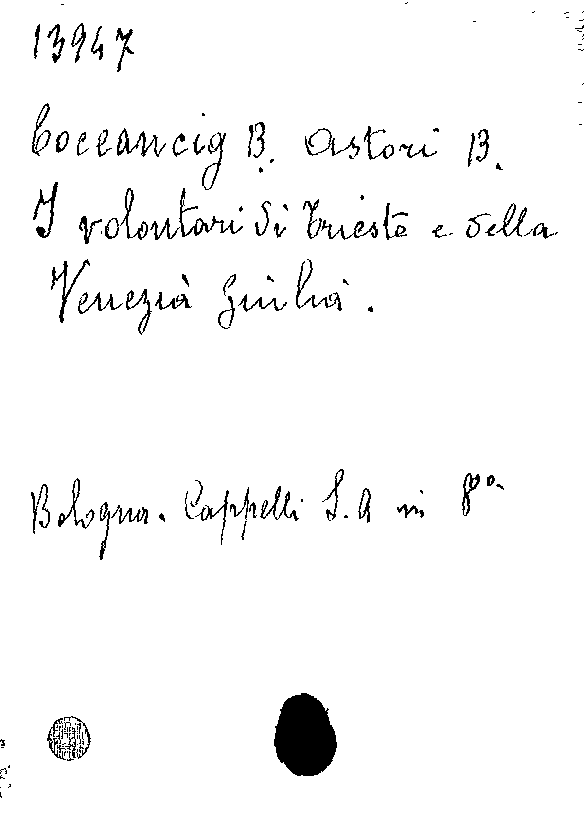 13947
Coceancig B. Astori B.
I volontari di Trieste e della
Venezia Giulia.
Bologna. Cappelli S.A in 8vo.